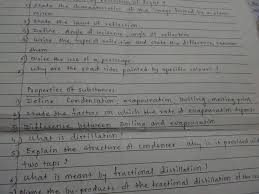 State the characteristics of the image formed by a plane
mirror
State the laws of reflection
Define Angle of incidence, angle of reflection
Write the types of reflection and state the difference between
them
Write the use of a periscope
Why are the road side painted by specific colours?
Properties of substances
1) Define Condensation, evaporation, boiling, melting point
2) State the factors on which the rate of evaporation depends
3) Difference between boiling and evaporation
4) What is distillation
5) Explain the structure of condenser Why is it provided with
two taps?
6) What is meant by fractional distillation?
Name the by-products of the fractional distillation of the